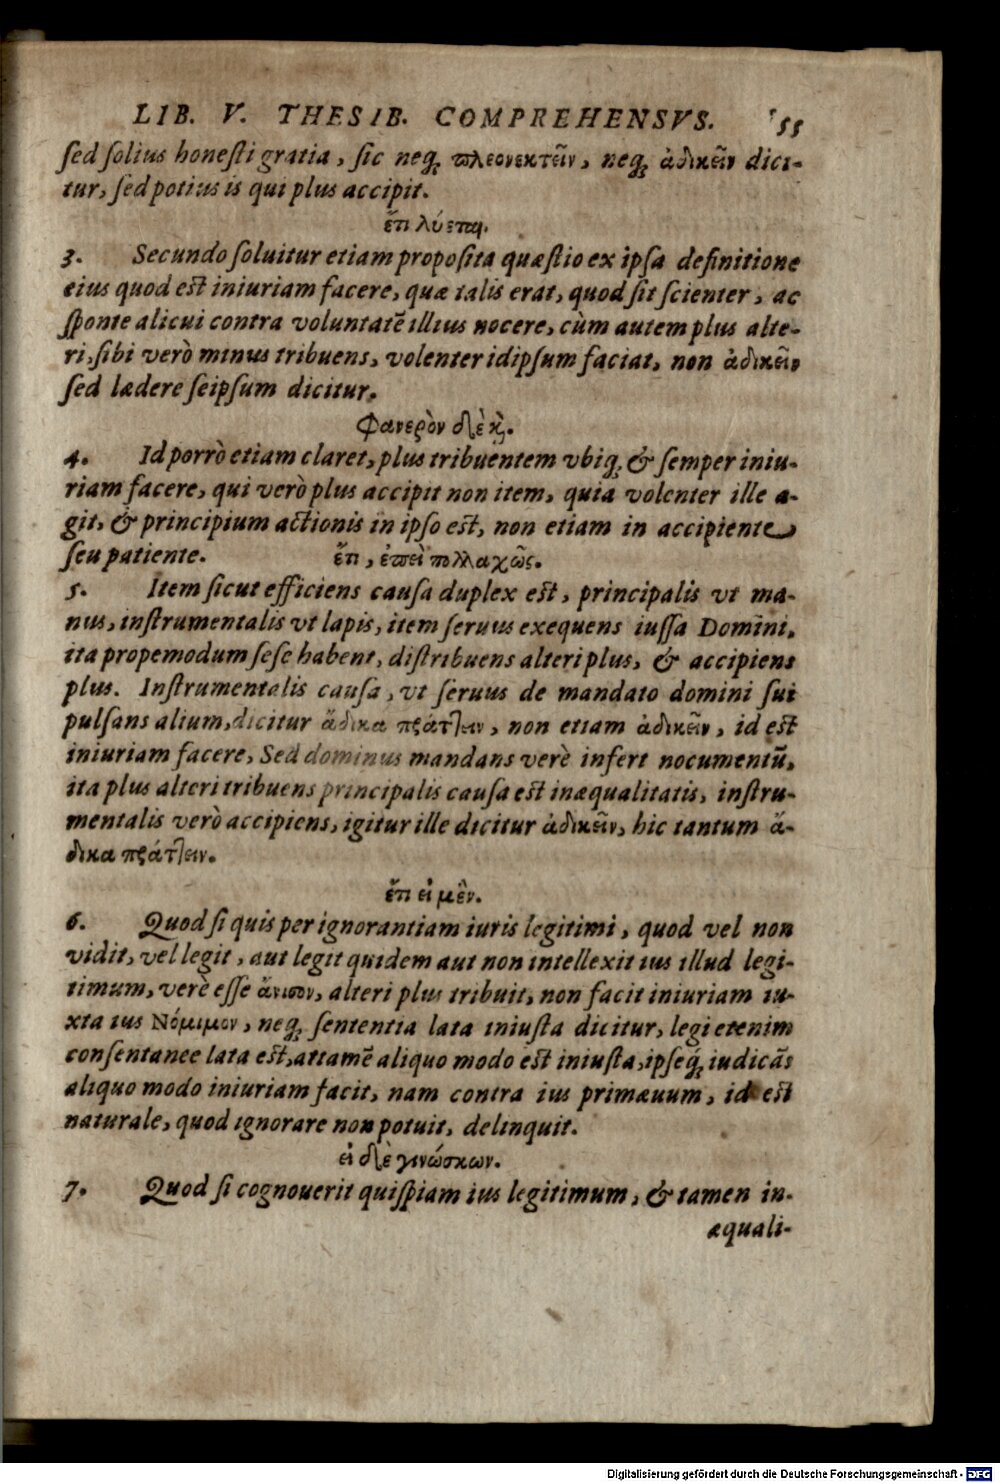 LIB. V. THESIB. COMPREHENSVS. 55
sed solius honesti gratia, sic neq; πλεονεκτεῖν, neq; ἀδικεῖν dici-
tur, sed potius is qui plus accipit.
ἔτι λύεται.
3. Secundo soluitur etiam proposita quæstio ex ipsa definitione
eius quod est iniuriam facere, quæ talis erat, quod sit scienter, ac
sponte alicui contra voluntatẽ illius nocere, cùm autem plus alte-
ri, sibi verò minus tribuens, volenter idipsum faciat, non ἀδικεῖν
sed lædere seipsum dicitur.
Φανερὸν δὲ ϗ̀.
4. Id porrò etiam claret, plus tribuentem vbiq; & semper iniu-
riam facere, qui verò plus accipit non item, quia volenter ille a-
git, & principium actionis in ipso est, non etiam in accipiente
seu patiente. ἔτι, ἐπεὶ πολλαχῶς.
5. Item sicut efficiens causa duplex est, principalis vt ma-
nus, instrumentalis vt lapis, item seruus exequens iussa Domini,
ita propemodum sese habent, distribuens alteri plus, & accipiens
plus. Instrumentalis causa, vt seruus de mandato domini sui
pulsans alium, dicitur ἄδικα πράτλειν, non etiam ἀδικεῖν, id est
iniuriam facere, Sed dominus mandans verè infert nocumentũ,
ita plus alteri tribuens principalis causa est inæqualitatis, instru-
mentalis verò accipiens, igitur ille dicitur ἀδικεῖν, hic tantum ἄ-
δικα πράτλειν.
ἔτι εἰ μὲν.
6. Quod si quis per ignorantiam iuris legitimi, quod vel non
vidit, vel legit, aut legit quidem aut non intellexit ius illud legi-
timum, verè esse ἄνισον, alteri plus tribuit, non facit iniuriam iu-
xta ius Νόμιμον, neq; sententia lata iniusta dicitur, legi etenim
consentanee lata est, attamẽ aliquo modo est iniusta, ipseq́; iudicãs
aliquo modo iniuriam facit, nam contra ius primæuum, id est
naturale, quod ignorare non potuit, delinquit.
εἰ δὲ γινώσκων.
7. Quod si cognouerit quispiam ius legitimum, & tamen in-
æquali-
Digitalisierung gefördert durch die Deutsche Forschungsgemeinschaft - DFG